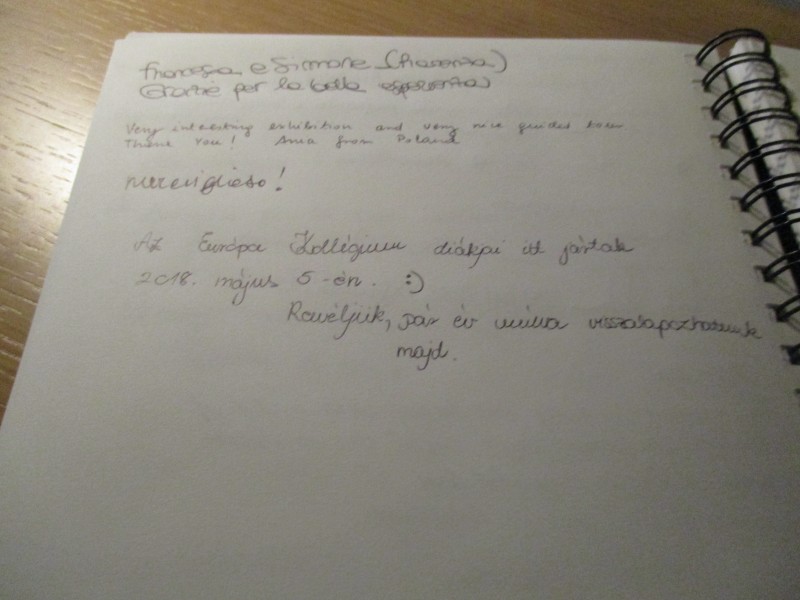 Francesca e Simone (Piacenza)
Grazie per la bella esperienza
Very interesting exhibition and very nice guided tour
Thank You! Ania from Poland
Meraviglioso!
Az Európa Kollégium diákjai itt jártak
2018. május 5-én. :)
Reméljük, pár év múlva visszalapozhatunk
majd.